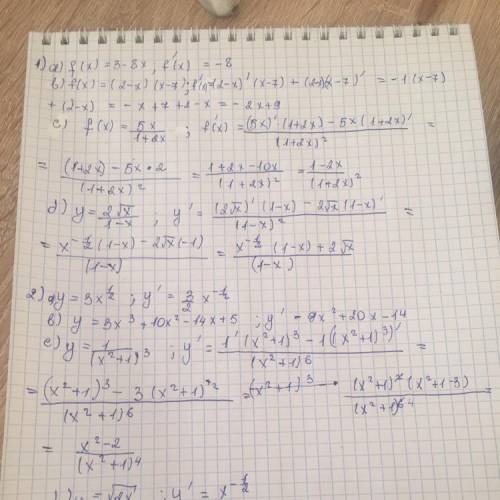 1) a) f(x) = 3-8x, f'(x) = -8
b) f(x) = (2-x)(x-7); f'(x)=(2-x)'(x-7) + (2-x)(x-7)' = -1(x-7)
+ (2-x) = -x+7+2-x = -2x+9
c) f(x) = 5x/(1+2x) ; f'(x) = ((5x)'(1+2x) - 5x(1+2x)')/(1+2x)² =
= ((1+2x) - 5x•2)/(1+2x)² = (1+2x-10x)/(1+2x)² = (1-2x)/(1+2x)²
d) y = 2√x/(1-x) , y' = ((2√x)'(1-x) - 2√x(1-x)')/(1-x)² =
= (x^(-1/2)(1-x) - 2√x(-1))/(1-x) = (x^(-1/2)(1-x) + 2√x)/(1-x)
2) a) y = 3x^(1/2) ; y' = 3/2 x^(-1/2)
b) y = 3x³+10x²-14x+5 ; y' = 9x²+20x-14
c) y = 1/(x²+1)³ ; y' = (1'(x²+1)³ - 1((x²+1)³)')/(x²+1)⁶ =
= ((x²+1)³ - 3(x²+1)²)/(x²+1)⁶ = (x²+1)³ - (x²+1)²(x²+1-3)/(x²+1)⁶ ⁴ =
= (x²-2)/(x²+1)⁴
y = √2x ; y' = x^(-1/2)